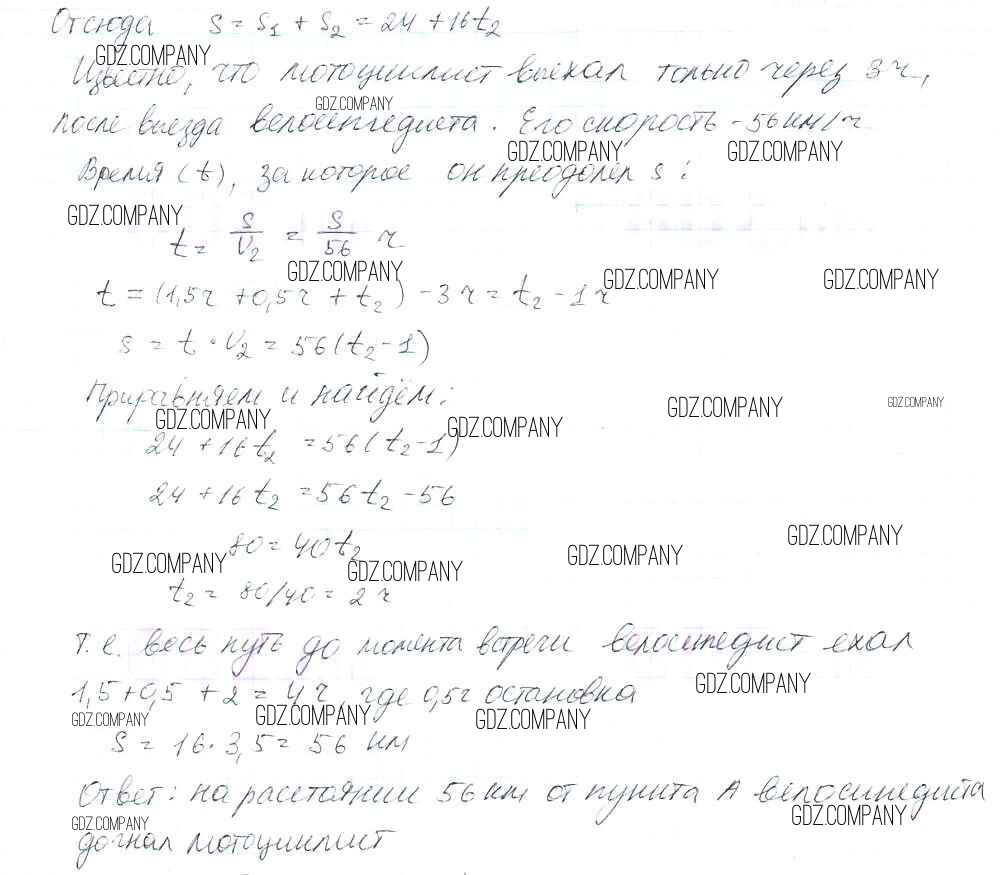 Отсюда S = S₁ + S₂ = 24 + 16t₂
GDZ.COMPANY
Известно, что мотоциклист выехал только через 3 ч,
GDZ.COMPANY
после выезда велосипедиста. Его скорость - 56 км/ч
GDZ.COMPANY GDZ.COMPANY
Время (t), за которое он преодолел s:
GDZ.COMPANY
t = S/V₂ = S/56 ч
GDZ.COMPANY GDZ.COMPANY GDZ.COMPANY
t = (1,5ч + 0,5ч + t₂) - 3ч = t₂ - 1ч
s = t · V₂ = 56(t₂ - 1)
Приравняем и найдём:
GDZ.COMPANY GDZ.COMPANY GDZ.COMPANY GDZ.COMPANY
24 + 16t₂ = 56(t₂ - 1)
24 + 16t₂ = 56t₂ - 56
80 = 40t₂
GDZ.COMPANY GDZ.COMPANY GDZ.COMPANY GDZ.COMPANY
t₂ = 80/40 = 2 ч
т.е. весь путь до момента встречи велосипедист ехал
1,5 + 0,5 + 2 = 4ч, где 0,5ч остановка
GDZ.COMPANY
GDZ.COMPANY GDZ.COMPANY GDZ.COMPANY
S = 16 · 3,5 = 56 км
Ответ: на расстоянии 56 км от пункта А велосипедиста
GDZ.COMPANY GDZ.COMPANY
догнал мотоциклист